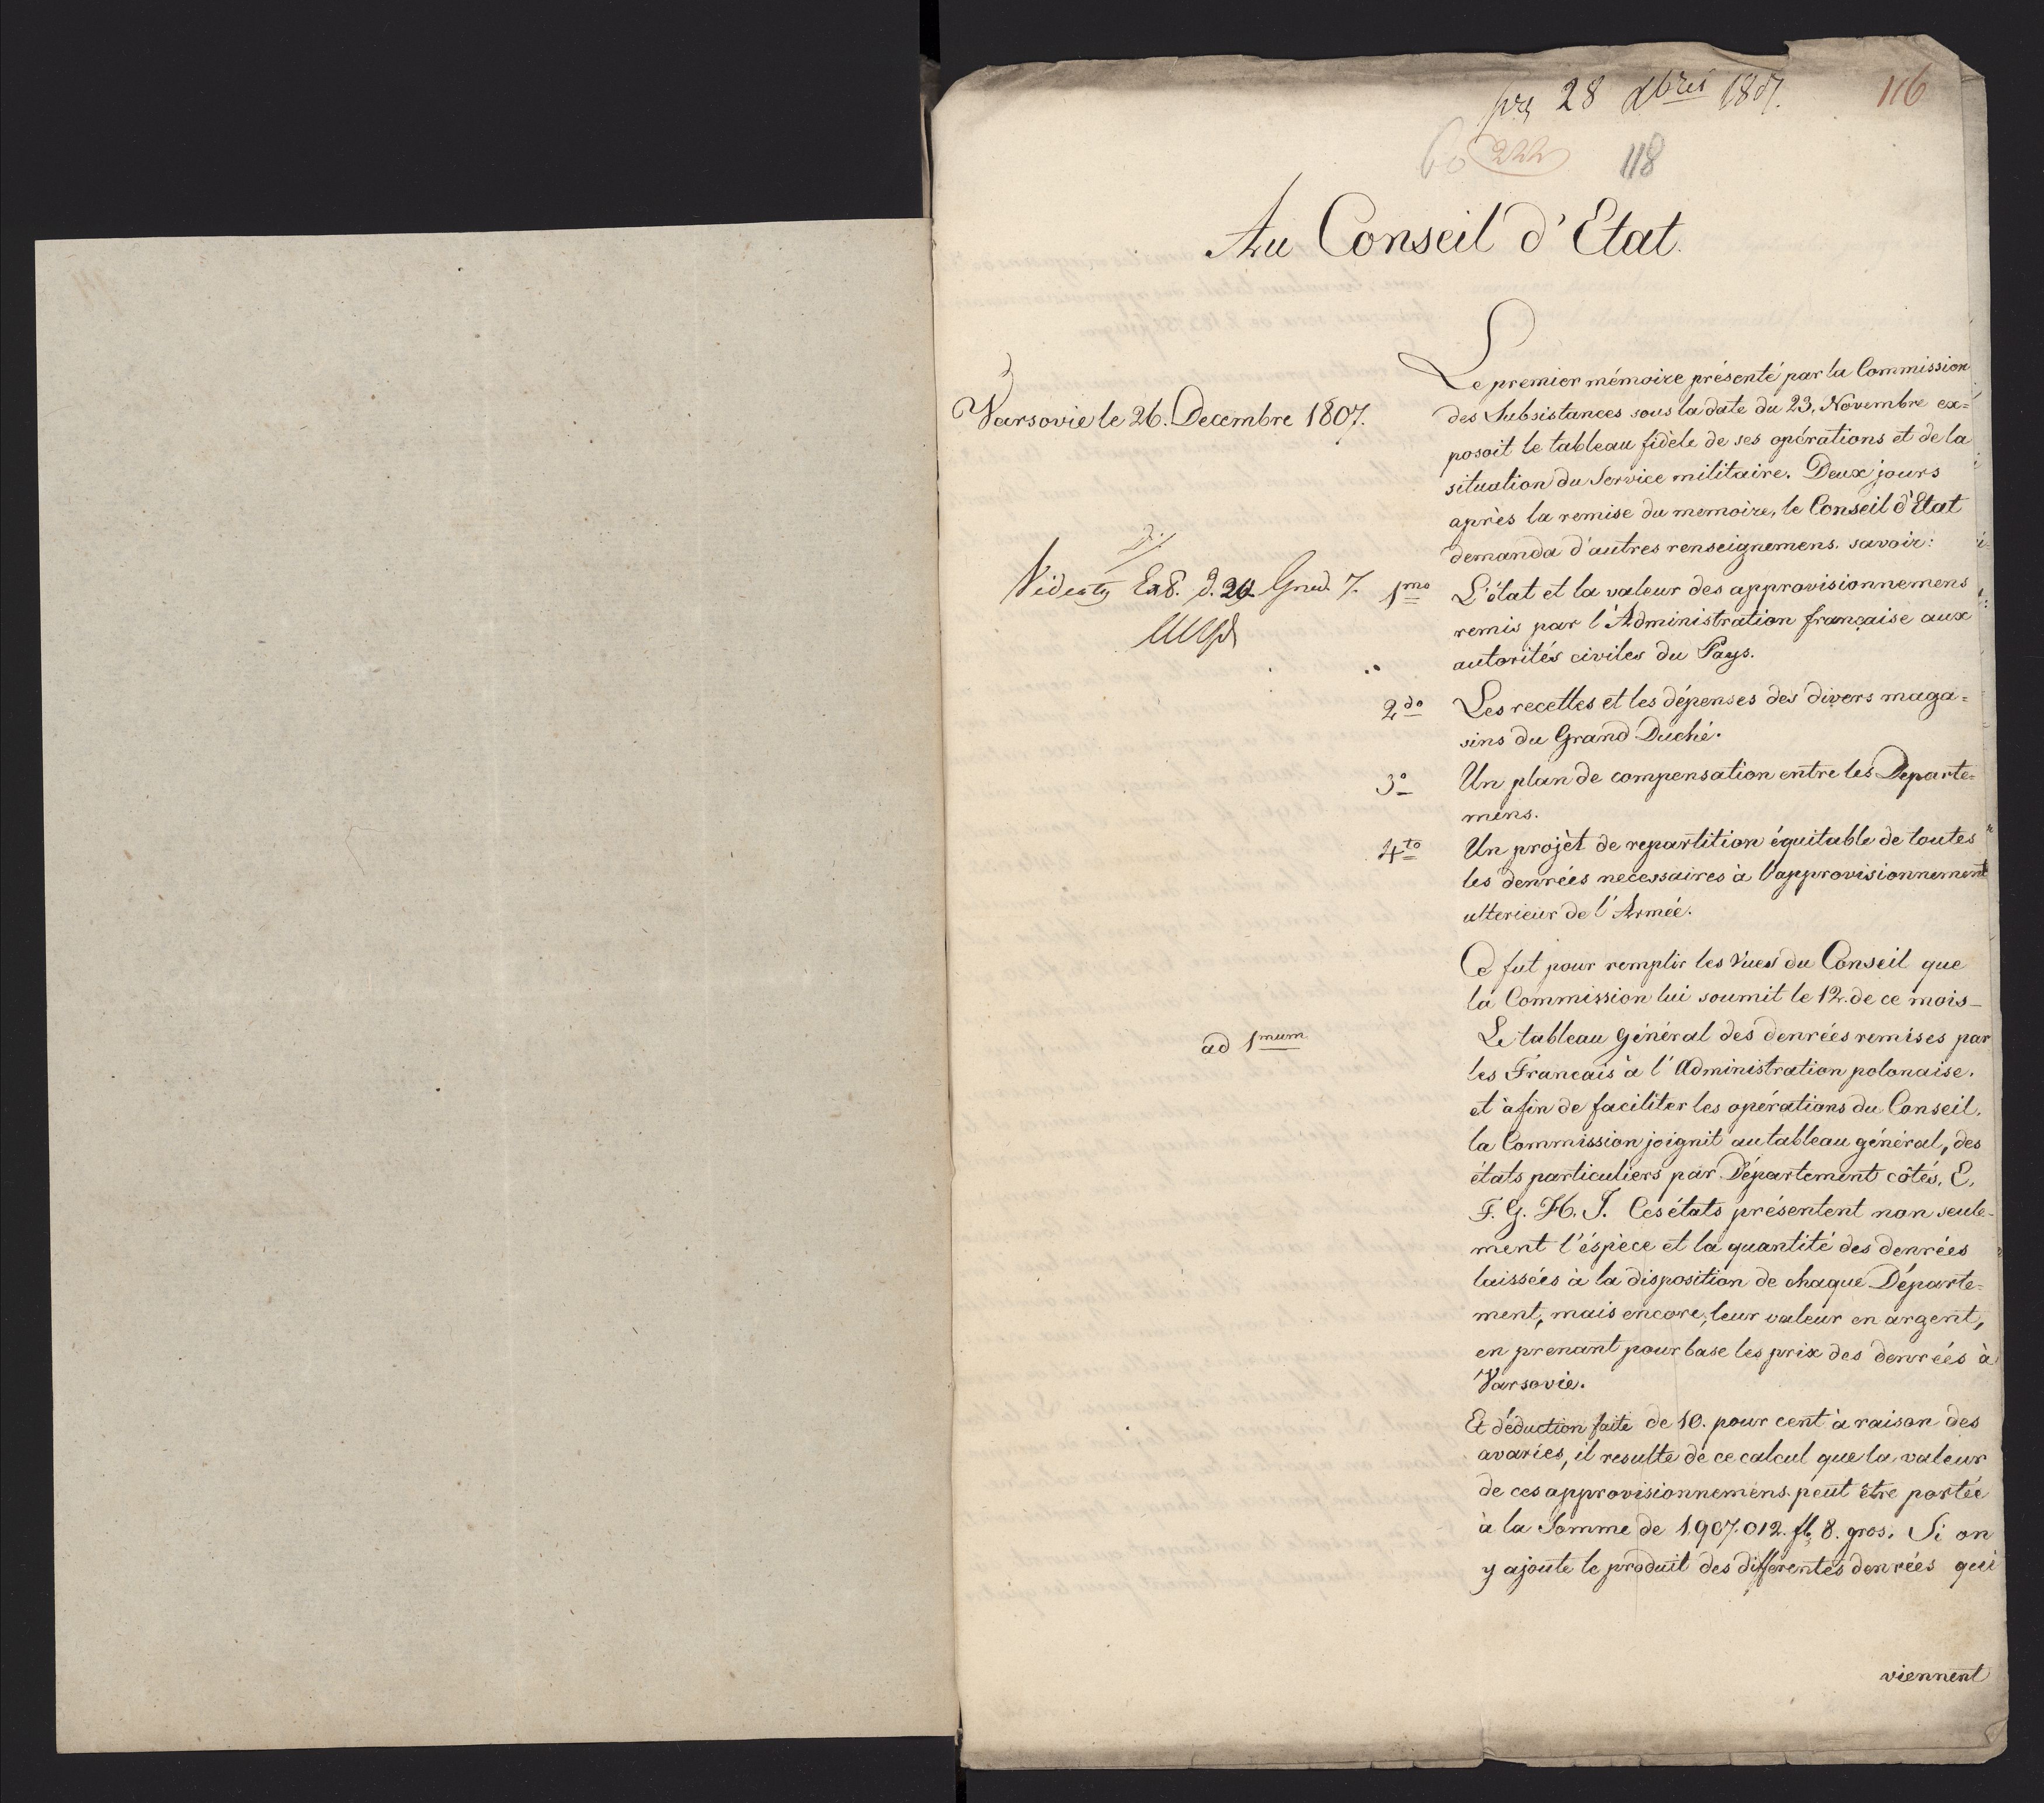 28 Xbris 1807.
116
60 222 118
Au Conseil d'Etat.
Varsovie le 26. Decembre 1807.
Le premier mémoire présenté par la Commission
des Subsistances sous la date du 23. Novembre ex=
posoit le tableau fidèle de ses opérations et de la
situation du Service militaire. Deux jours
après la remise du memoire, le Conseil d'Etat
demanda d'autres renseignemens. savoir:
1mo L'état et la valeur des approvisionnemens
remis par l'Administration française aux
autorités civiles du Pays.
2do Les recettes et les dépenses des divers maga=
sins du Grand Duché.
3o Un plan de compensation entre les Departe=
mens.
4to Un projèt de repartition équitable de toutes
les denrées necessaires à l'approvisionnement
ulterieur de l'Armée.
Ce fut pour remplir les Vues du Conseil que
la Commission lui soumit le 12. de ce mois_
ad 1mum Le tableau général des denrées remises par
les Francais à l'Administration polonaise.
et àfin de faciliter les opérations du Conseil,
la Commission joignit au tableau général, des
états particuliers par Département côtés. E.
F. G. H. J. Ces états présentent non seule-
ment l'éspèce et la quantité des denrées
laissées à la disposition de chaque Départe-
ment, mais encore, leur valeur en argent,
en prenant pour base les prix des denrées à
Varsovie.
Et déduction faite de 10. pour cent à raison des
avaries, il resulte de ce calcul que la valeur
de ces approvisionnemens peut être portée
à la Somme de 1.907.012. fl. 8. gros. Si on
y ajoute le produit des differentes denrées qui
viennent